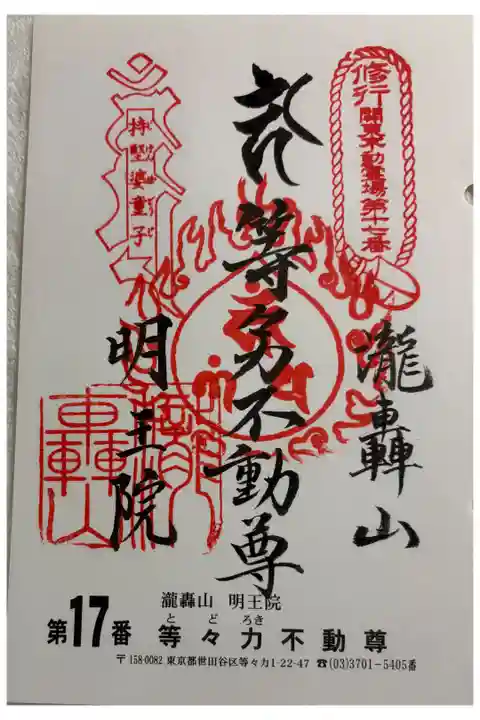 修行
関東不動霊場第十七番
等々力不動尊
瀧轟山
持堅婆童子
明王院
瀧轟山 明王院
第17番
とどろき
等々力不動尊
〒158-0082 東京都世田谷区等々力1-22-47 ☎(03)3701-5405番